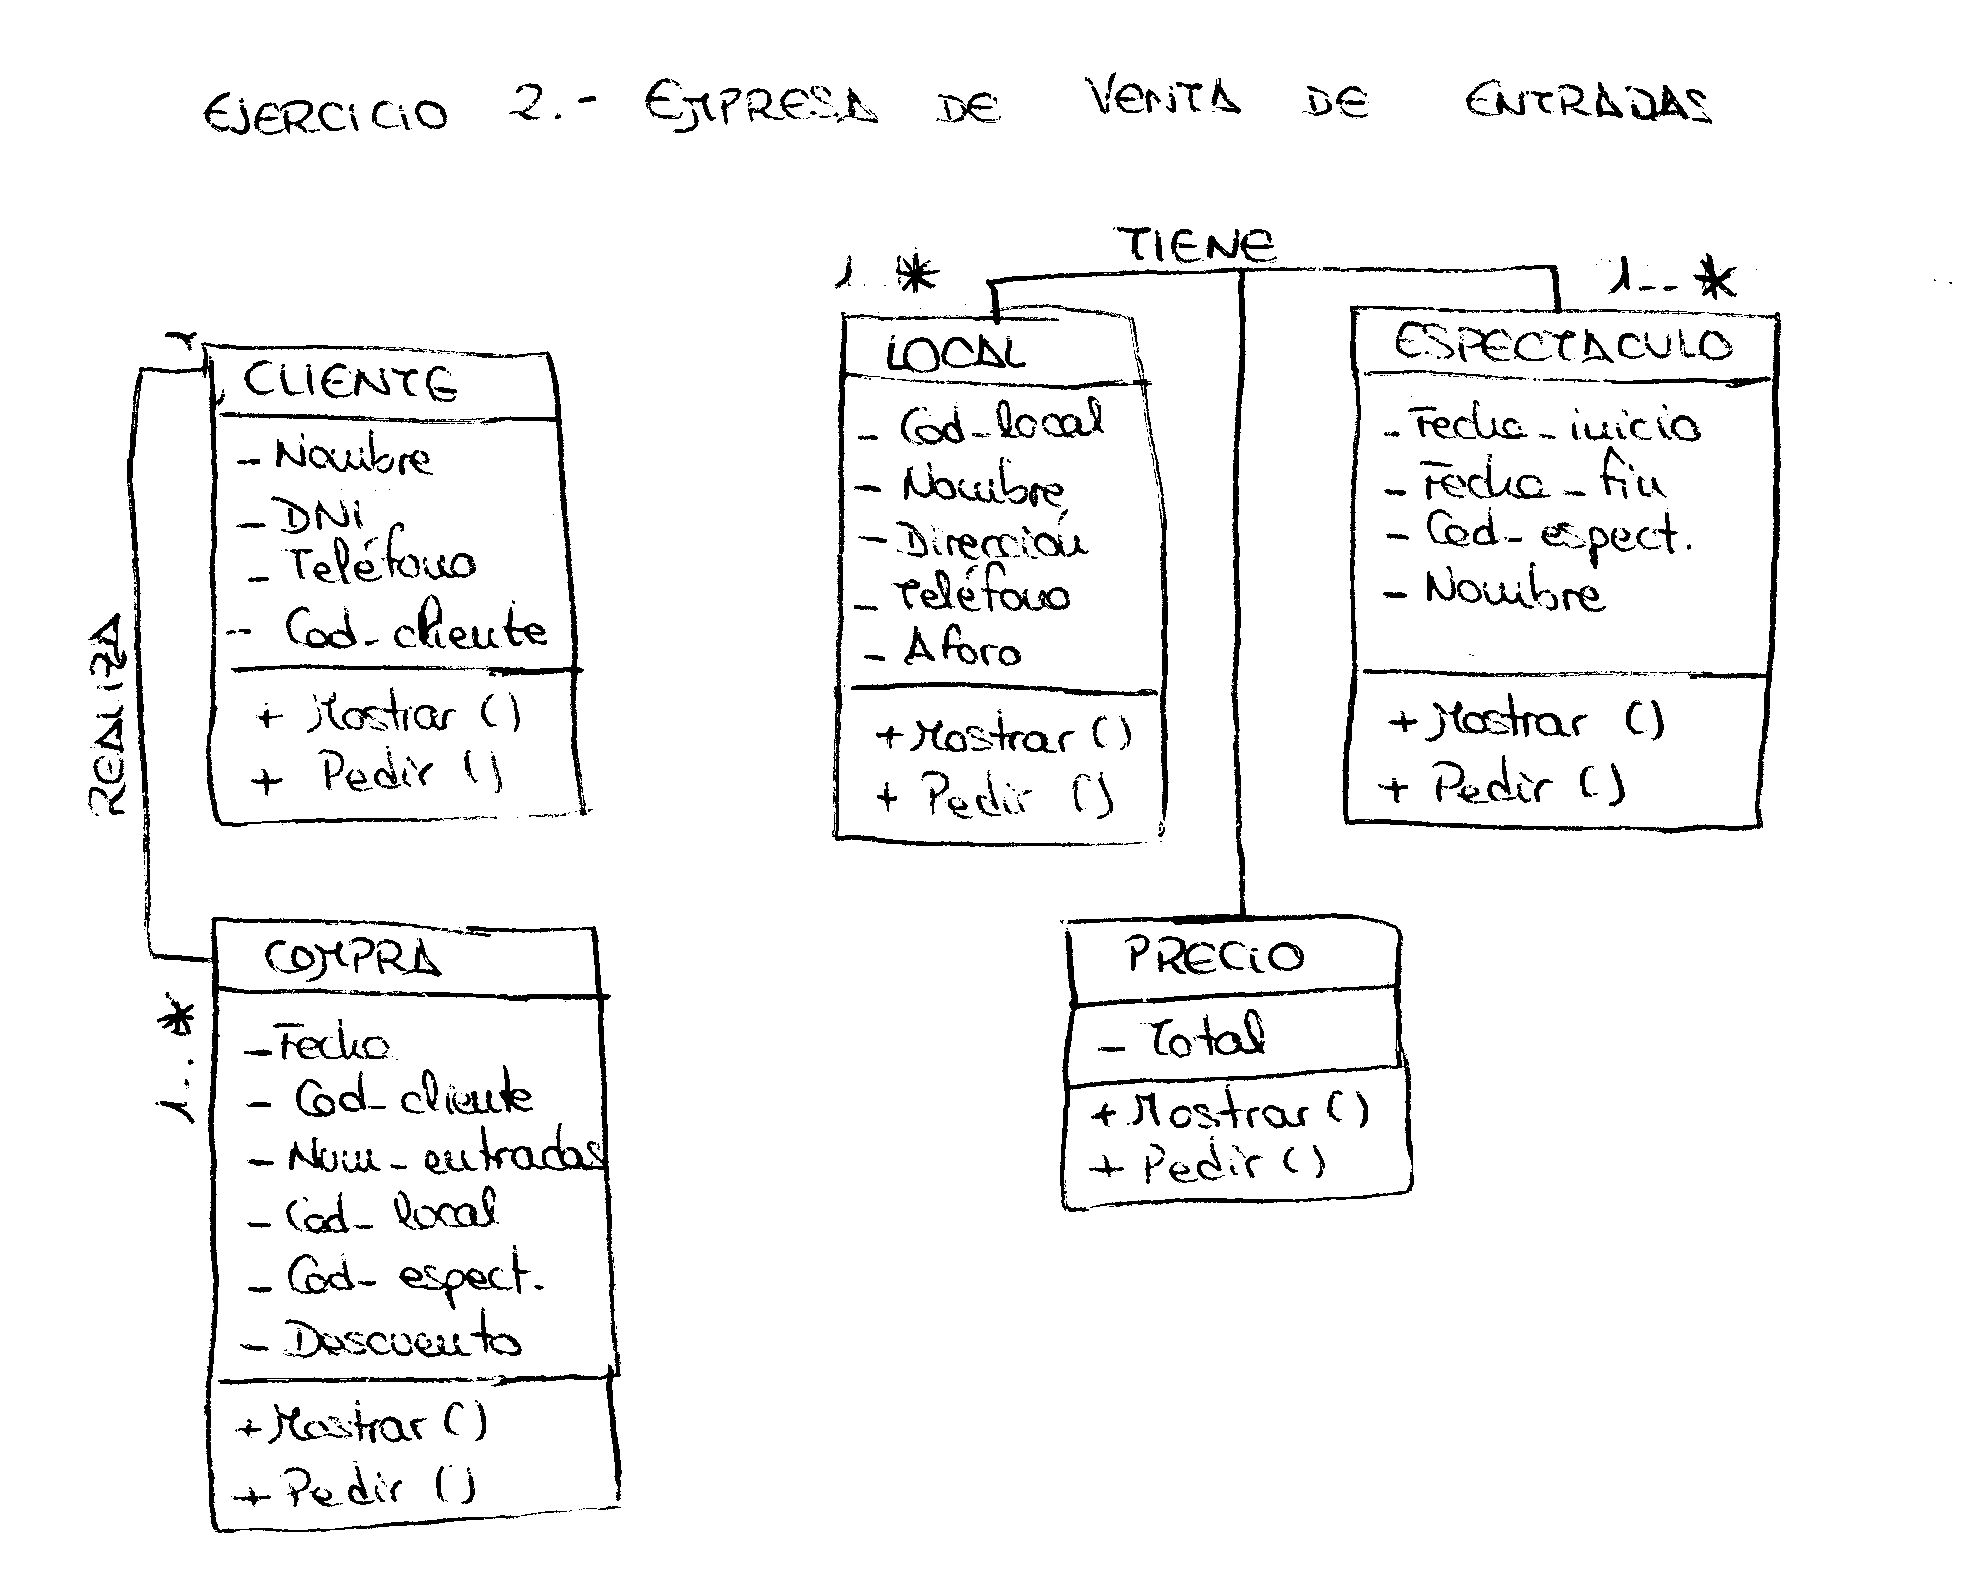 EJERCICIO 2.- EMPRESA DE VENTA DE ENTRADAS
REALIZA
CLIENTE
- Nombre
- DNI
- Teléfono
- Cod-cliente
+ Mostrar ()
+ Pedir ()
1..*
COMPRA
- Fecha
- Cod-cliente
- Num-entradas
- Cod-local
- Cod-espect.
- Descuento
+ Mostrar ()
+ Pedir ()
TIENE
1..*
LOCAL
- Cod-local
- Nombre
- Dirección
- Teléfono
- Aforo
+ Mostrar ()
+ Pedir ()
1..*
ESPECTACULO
- Fecha-inicio
- Fecha-fin
- Cod-espect.
- Nombre
+ Mostrar ()
+ Pedir ()
PRECIO
- Total
+ Mostrar ()
+ Pedir ()